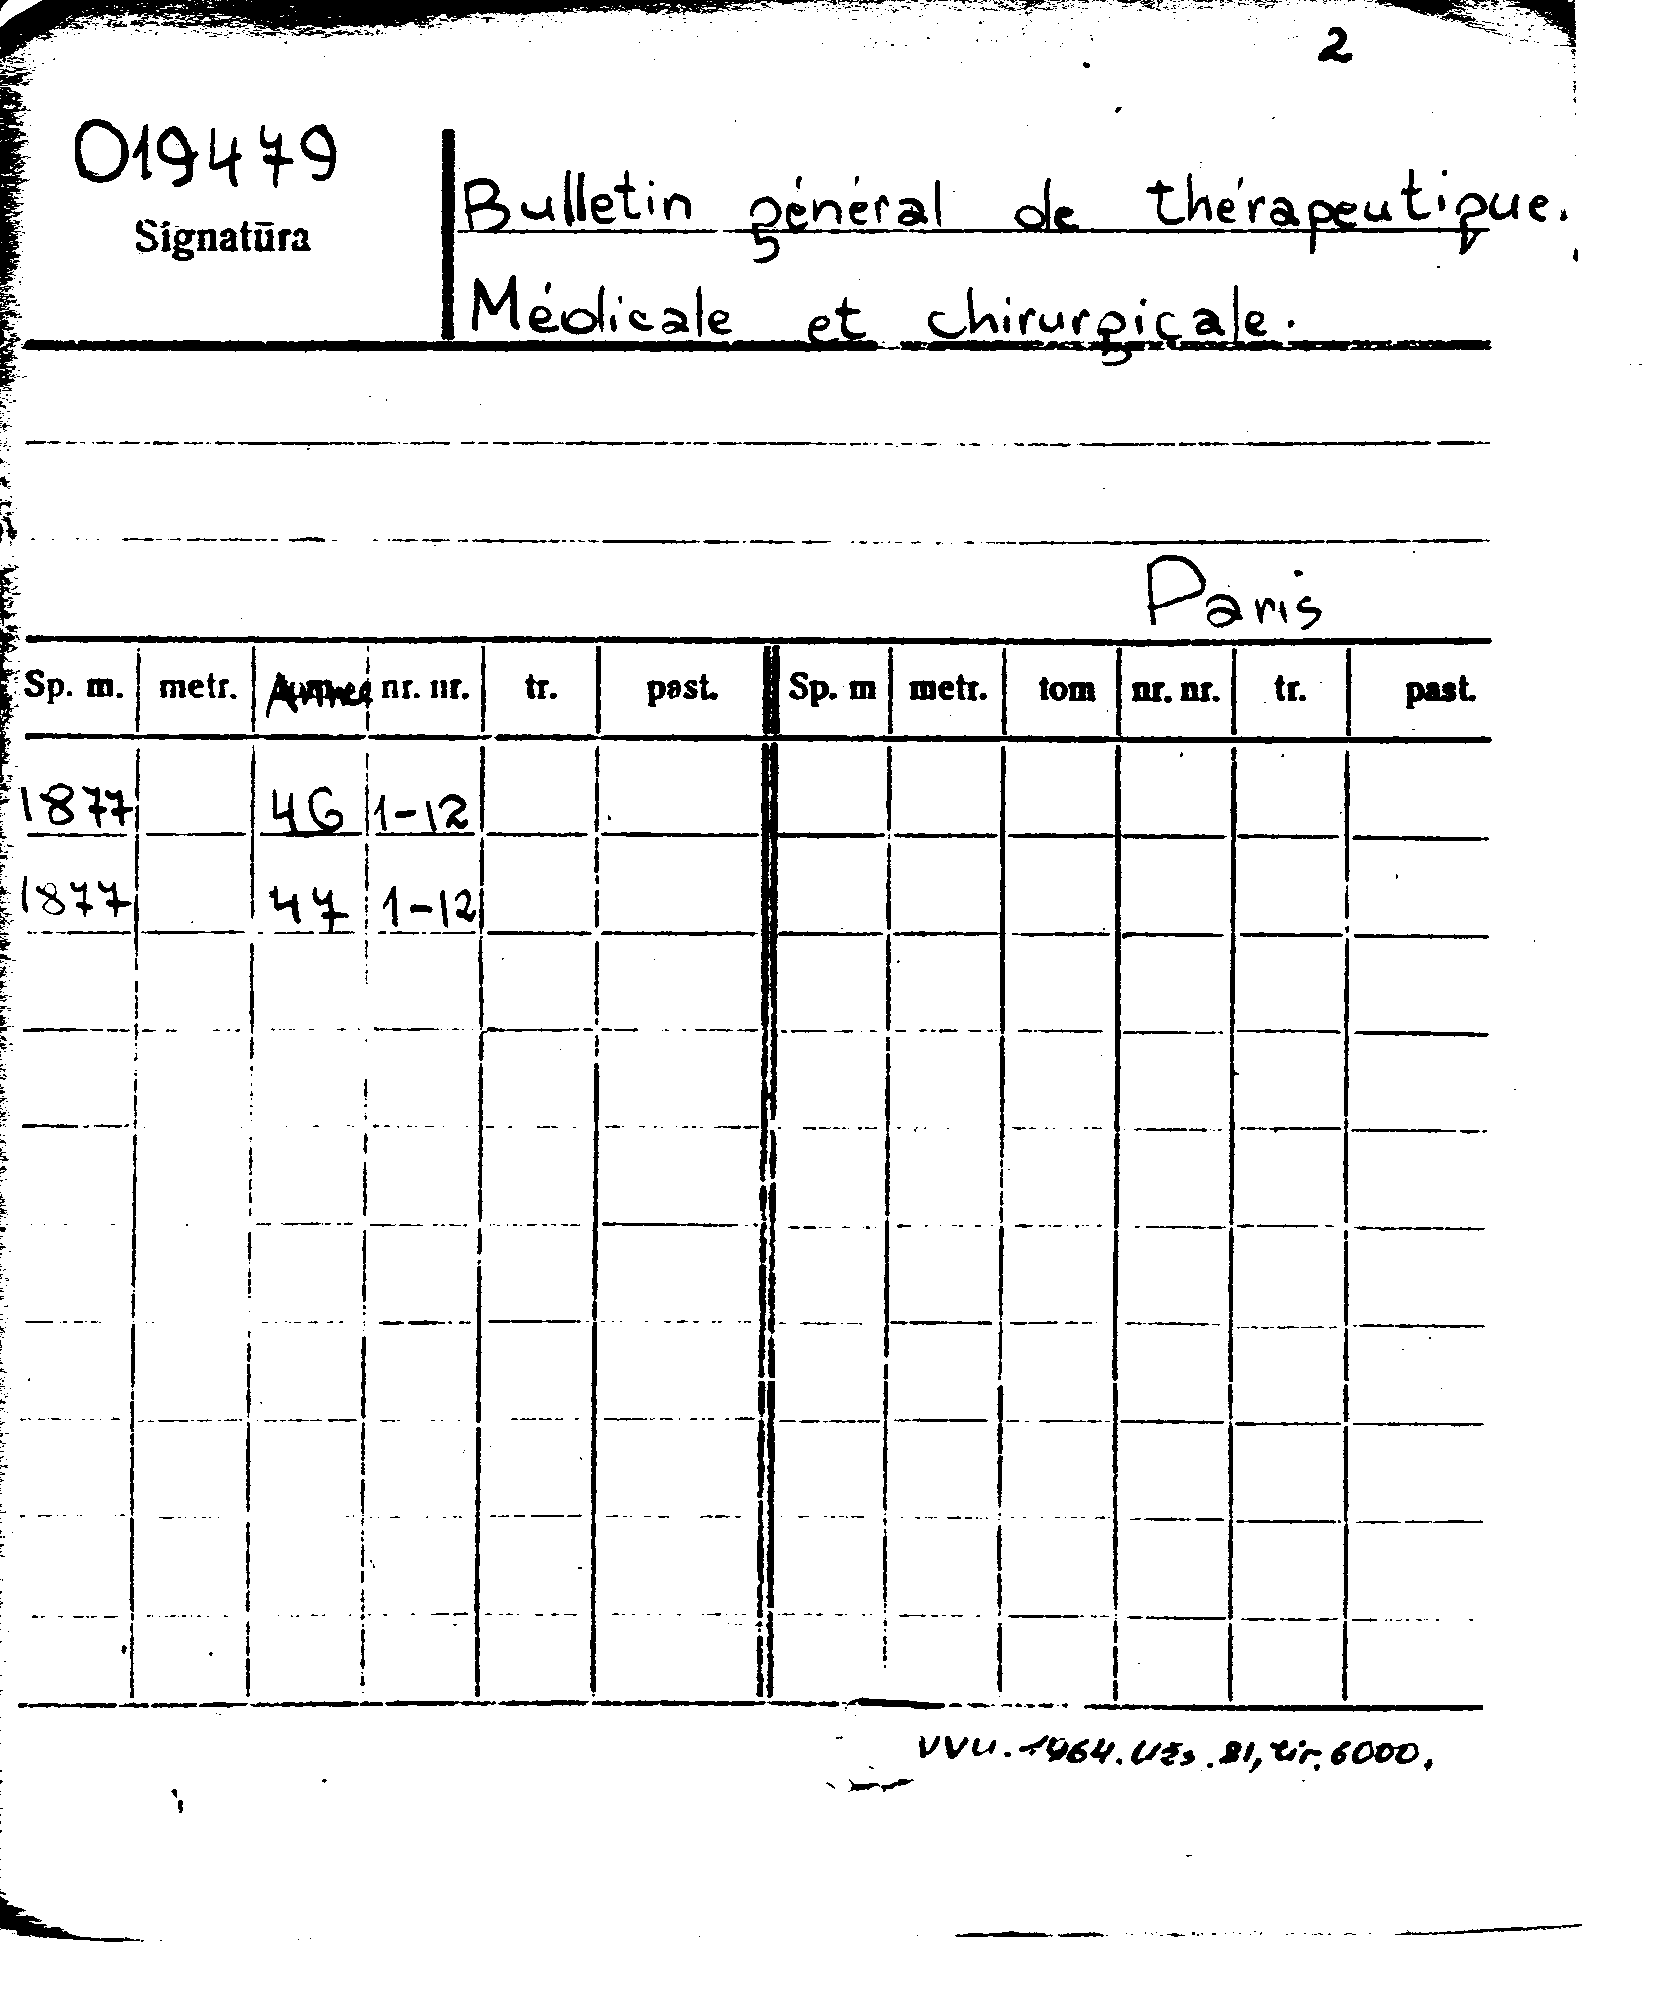 2
019479
Signatūra
Bulletin général de thérapeutique.
Médicale et chirurgicale.
Paris
Sp. m. metr. Année nr. nr. tr. past. Sp. m metr. tom nr. nr. tr. past.
1877 46 1-12
1877 47 1-12
VVU. 1964. Užs. 81, tir. 6000.